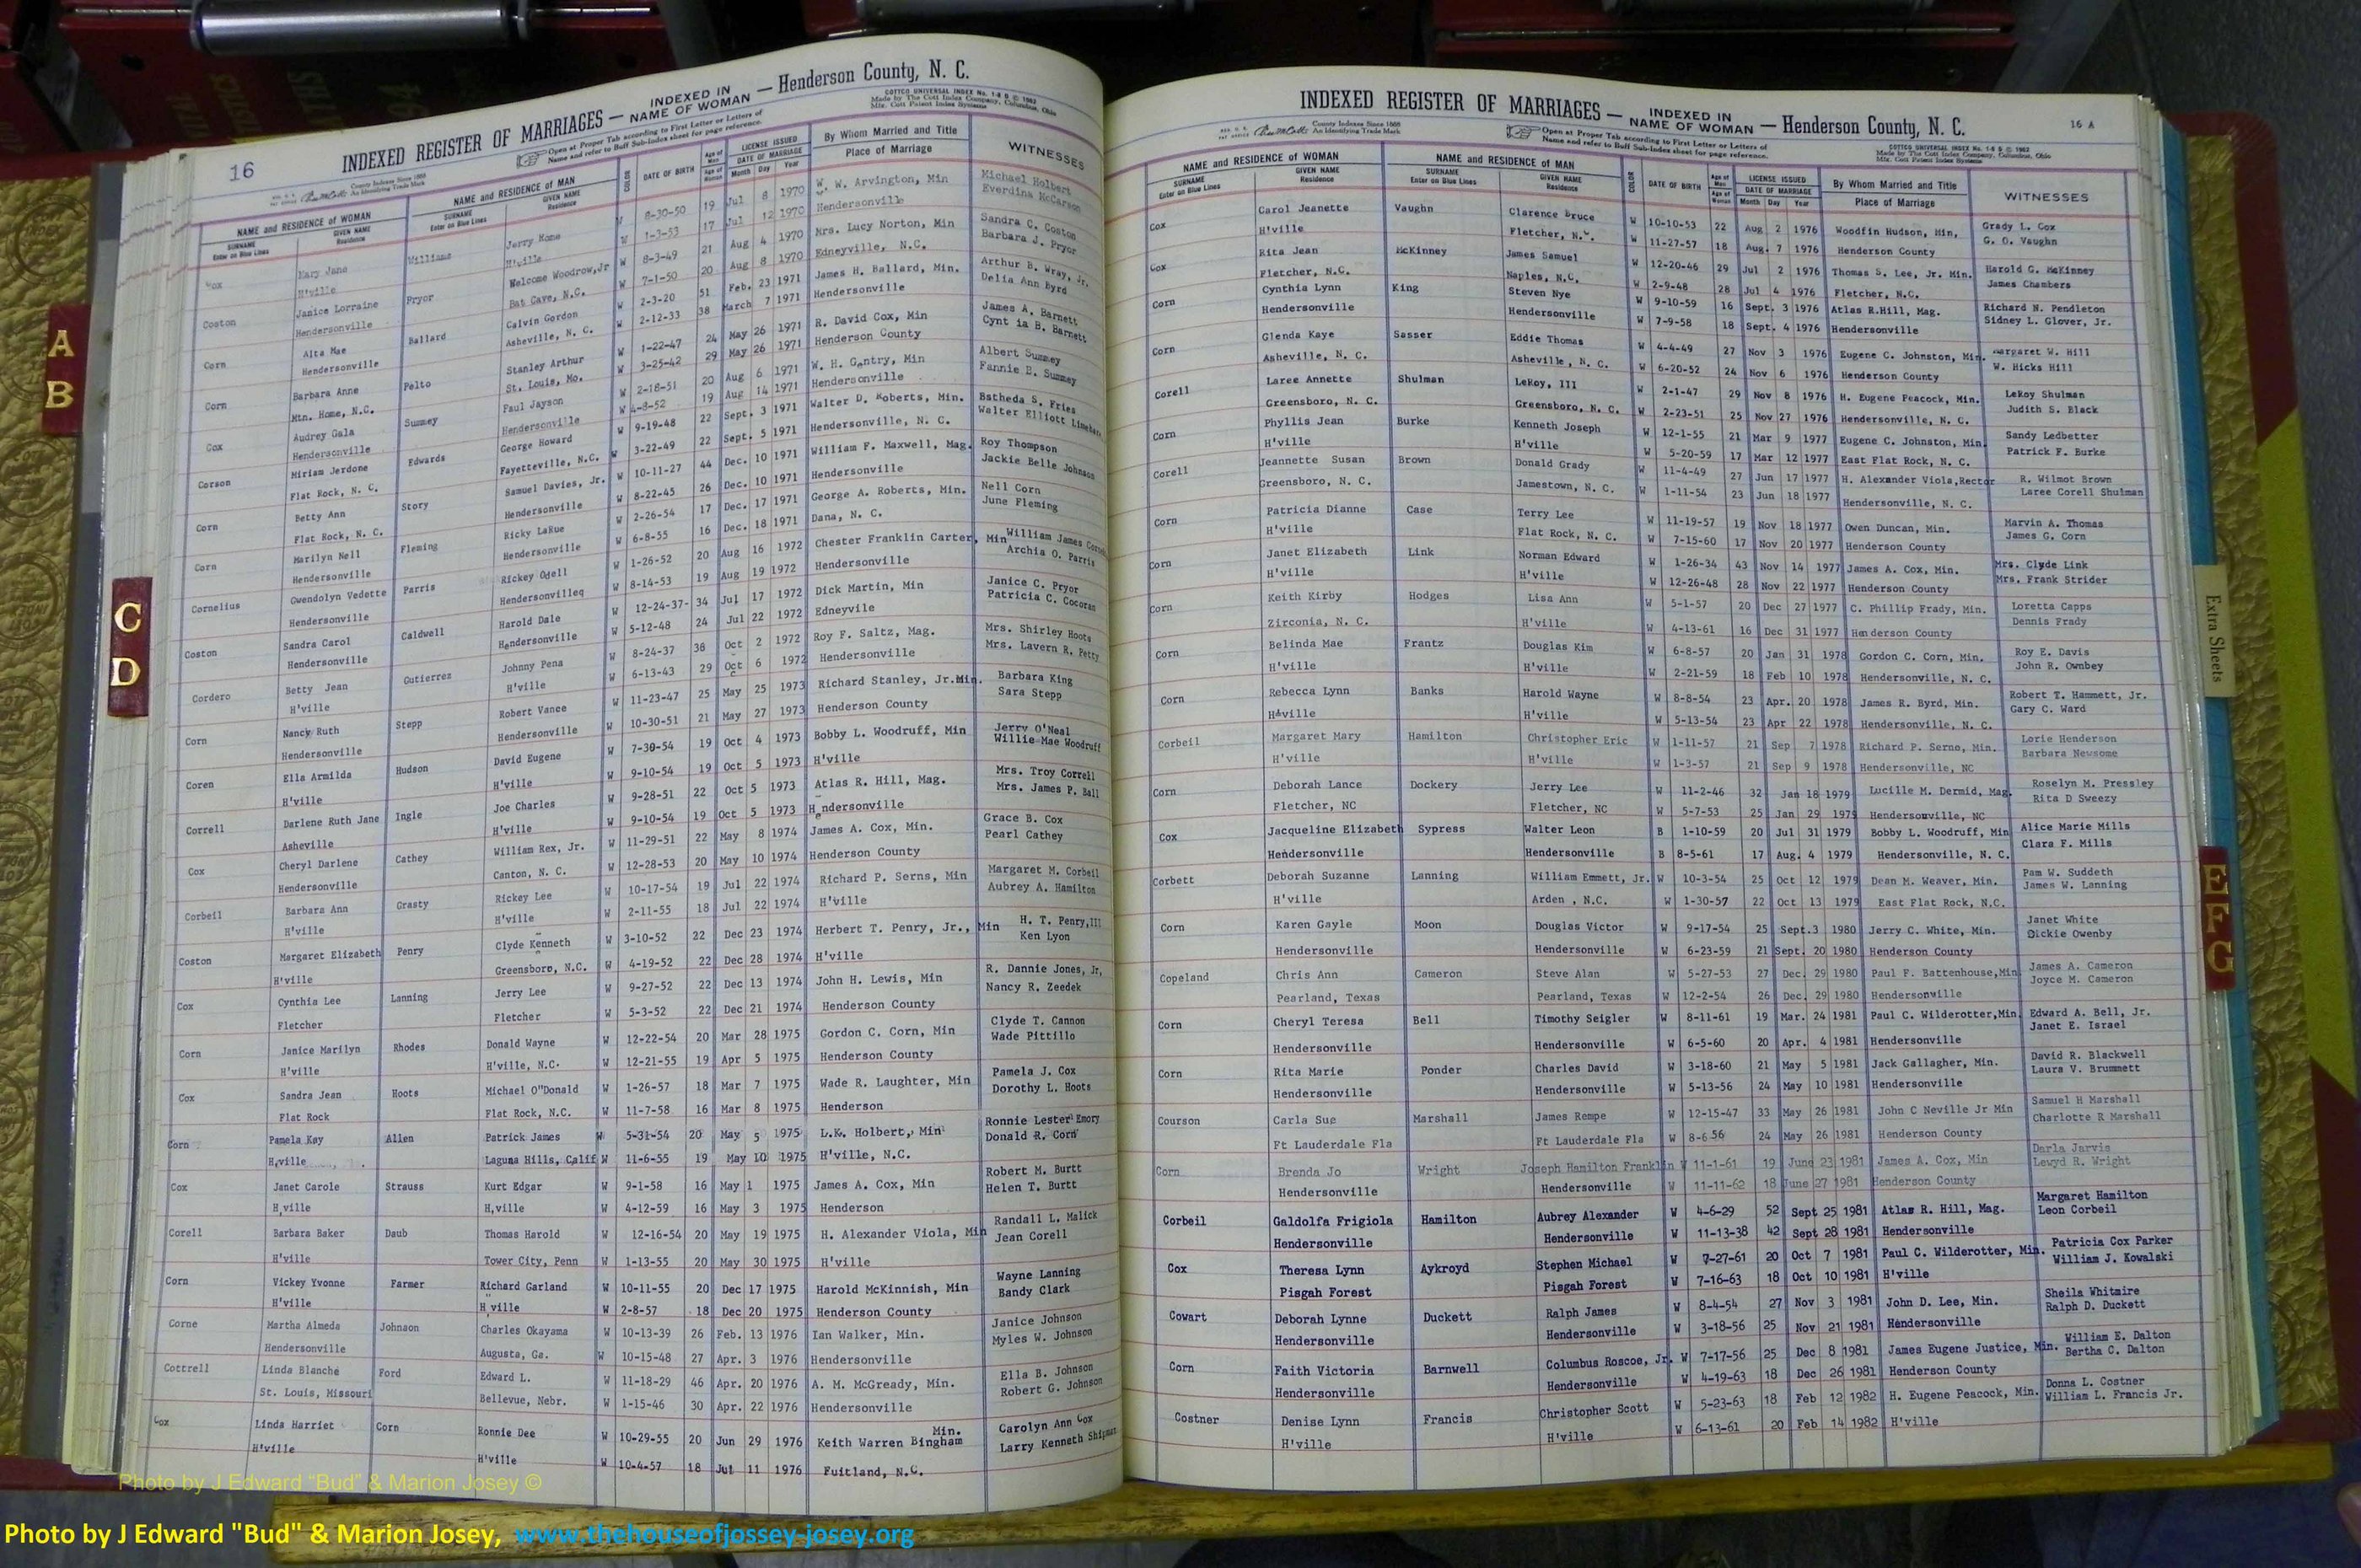 16
INDEXED REGISTER OF MARRIAGES — INDEXED IN NAME OF WOMAN — Henderson County, N. C.
Open at Proper Tab according to First Letter or Letters of
Name and refer to Buff Sub-Index sheet for page reference.
COTTCO UNIVERSAL INDEX No. 1-8 B © 1962
Made by The Cott Index Company, Columbus, Ohio
County Indexes Since 1888
An Identifying Trade Mark
NAME and RESIDENCE of WOMAN NAME and RESIDENCE of MAN COLOR DATE OF BIRTH Age of Man Age of Woman LICENSE ISSUED DATE OF MARRIAGE Month Day Year By Whom Married and Title Place of Marriage WITNESSES
SURNAME Enter on Blue Lines GIVEN NAME Residence SURNAME Enter on Blue Lines GIVEN NAME Residence
Cox Mary Jane Williams Jerry Kone W 8-30-50 19 Jul 8 1970 W. W. Arvington, Min Michael Holbert
H'ville H'ville W 1-3-53 17 Jul 12 1970 Hendersonville Everdina McCarson
Coston Janice Lorraine Pryor Welcome Woodrow,Jr W 8-3-49 21 Aug 4 1970 Mrs. Lucy Norton, Min Sandra C. Coston
Hendersonville Bat Cave, N.C. W 7-1-50 20 Aug 8 1970 Edneyville, N.C. Barbara J. Pryor
Corn Alta Mae Ballard Calvin Gordon W 2-3-20 51 Feb. 23 1971 James H. Ballard, Min. Arthur B. Wray, Jr.
Hendersonville Asheville, N. C. W 2-12-33 38 March 7 1971 Hendersonville Delia Ann Byrd
Corn Barbara Anne Pelto Stanley Arthur W 1-22-47 24 May 26 1971 R. David Cox, Min James A. Barnett
Mtn. Home, N.C. St. Louis, Mo. W 3-25-42 29 May 26 1971 Henderson County Cynt ia B. Barnett
Cox Audrey Gala Summey Paul Jayson W 2-18-51 20 Aug 6 1971 W. H. Gentry, Min Albert Summey
Hendersonville Hendersonville W 4-8-52 19 Aug 14 1971 Hendersonville Fannie B. Summey
Corson Miriam Jerdone Edwards George Howard W 9-19-48 22 Sept. 3 1971 Walter D. Roberts, Min. Bstheda S. Fries
Flat Rock, N. C. Fayetteville, N.C. W 3-22-49 22 Sept. 5 1971 Hendersonville, N. C. Walter Elliott
Corn Betty Ann Story Samuel Davies, Jr. W 10-11-27 44 Dec. 10 1971 William F. Maxwell, Mag. Roy Thompson
Flat Rock, N. C. Hendersonville W 8-22-45 26 Dec. 10 1971 Hendersonville Jackie Belle Johnson
Corn Marilyn Nell Fleming Ricky LaRue W 2-26-54 17 Dec. 17 1971 George A. Roberts, Min. Nell Corn
Hendersonville Hendersonville W 6-8-55 16 Dec. 18 1971 Dana, N. C. June Fleming
Cornelius Gwendolyn Vedette Parris Rickey Odell W 1-26-52 20 Aug 16 1972 Chester Franklin Carter, Min William James
Hendersonville Hendersonvilleq W 8-14-53 19 Aug 19 1972 Hendersonville Archia O. Parris
Coston Sandra Carol Caldwell Harold Dale W 12-24-37- 34 Jul 17 1972 Dick Martin, Min Janice C. Pryor
Hendersonville Hendersonville W 5-12-48 24 Jul 22 1972 Edneyvile Patricia C. Cocoran
Cordero Betty Jean Gutierrez Johnny Pena W 8-24-37 38 Oct 2 1972 Roy F. Saltz, Mag. Mrs. Shirley Hoots
H'ville H'ville W 6-13-43 29 Oct 6 1972 Hendersonville Mrs. Lavern R. Petty
Corn Nancy Ruth Stepp Robert Vance W 11-23-47 25 May 25 1973 Richard Stanley, Jr.Min. Barbara King
Hendersonville Hendersonville W 10-30-51 21 May 27 1973 Henderson County Sara Stepp
Coren Ella Armilda Hudson David Eugene W 7-30-54 19 Oct 4 1973 Bobby L. Woodruff, Min Jerry O'Neal
H'ville H'ville W 9-10-54 19 Oct 5 1973 H'ville Willie Mae Woodruff
Correll Darlene Ruth Jane Ingle Joe Charles W 9-28-51 22 Oct 5 1973 Atlas R. Hill, Mag. Mrs. Troy Correll
Asheville H'ville W 9-10-54 19 Oct 5 1973 Hendersonville Mrs. James P. Ball
Cox Cheryl Darlene Cathey William Rex, Jr. W 11-29-51 22 May 8 1974 James A. Cox, Min. Grace B. Cox
Hendersonville Canton, N. C. W 12-28-53 20 May 10 1974 Henderson County Pearl Cathey
Corbeil Barbara Ann Grasty Rickey Lee W 10-17-54 19 Jul 22 1974 Richard P. Serns, Min Margaret M. Corbeil
H'ville H'ville W 2-11-55 18 Jul 22 1974 H'ville Aubrey A. Hamilton
Coston Margaret Elizabeth Penry Clyde Kenneth W 3-10-52 22 Dec 23 1974 Herbert T. Penry, Jr., Min H. T. Penry,III
H'ville Greensboro, N.C. W 4-19-52 22 Dec 28 1974 H'ville Ken Lyon
Cox Cynthia Lee Lanning Jerry Lee W 9-27-52 22 Dec 13 1974 John H. Lewis, Min R. Dannie Jones, Jr,
Fletcher Fletcher W 5-3-52 22 Dec 21 1974 Henderson County Nancy R. Zeedek
Corn Janice Marilyn Rhodes Donald Wayne W 12-22-54 20 Mar 28 1975 Gordon C. Corn, Min Clyde T. Cannon
H'ville H'ville, N.C. W 12-21-55 19 Apr 5 1975 Henderson County Wade Pittillo
Cox Sandra Jean Hoots Michael O"Donald W 1-26-57 18 Mar 7 1975 Wade R. Laughter, Min Pamela J. Cox
Flat Rock Flat Rock, N.C. W 11-7-58 16 Mar 8 1975 Henderson Dorothy L. Hoots
Corn Pamela Kay Allen Patrick James W 5-31-54 20 May 5 1975 L.K. Holbert, Min Ronnie Lester Emory
H,ville Laguna Hills, Calif W 11-6-55 19 May 10 1975 H'ville, N.C. Donald R. Corn
Cox Janet Carole Strauss Kurt Edgar W 9-1-58 16 May 1 1975 James A. Cox, Min Robert M. Burtt
H,ville H,ville W 4-12-59 16 May 3 1975 Henderson Helen T. Burtt
Corell Barbara Baker Daub Thomas Harold W 12-16-54 20 May 19 1975 H. Alexander Viola, Min Randall L. Malick
H'ville Tower City, Penn W 1-13-55 20 May 30 1975 H'ville Jean Corell
Corn Vickey Yvonne Farmer Richard Garland W 10-11-55 20 Dec 17 1975 Harold McKinnish, Min Wayne Lanning
H'ville H ville W 2-8-57 18 Dec 20 1975 Henderson County Bandy Clark
Corne Martha Almeda Johnson Charles Okayama W 10-13-39 26 Feb. 13 1976 Ian Walker, Min. Janice Johnson
Hendersonville Augusta, Ga. W 10-15-48 27 Apr. 3 1976 Hendersonville Myles W. Johnson
Cottrell Linda Blanche Ford Edward L. W 11-18-29 46 Apr. 20 1976 A. M. McGready, Min. Ella B. Johnson
St. Louis, Missouri Bellevue, Nebr. W 1-15-46 30 Apr. 22 1976 Hendersonville Robert G. Johnson
Cox Linda Harriet Corn Ronnie Dee W 10-29-55 20 Jun 29 1976 Keith Warren Bingham Min. Carolyn Ann Cox
H'ville H'ville W 10-4-57 18 Jul 11 1976 Fuitland, N.C. Larry Kenneth Shipman
16 A
INDEXED REGISTER OF MARRIAGES — INDEXED IN NAME OF WOMAN — Henderson County, N. C.
County Indexes Since 1888
An Identifying Trade Mark
Open at Proper Tab according to First Letter or Letters of
Name and refer to Buff Sub-Index sheet for page reference.
COTTCO UNIVERSAL INDEX No. 1-8 B © 1962
Made by The Cott Index Company, Columbus, Ohio
NAME and RESIDENCE of WOMAN NAME and RESIDENCE of MAN COLOR DATE OF BIRTH Age of Man Age of Woman LICENSE ISSUED DATE OF MARRIAGE Month Day Year By Whom Married and Title Place of Marriage WITNESSES
SURNAME Enter on Blue Lines GIVEN NAME Residence SURNAME Enter on Blue Lines GIVEN NAME Residence
Cox Carol Jeanette Vaughn Clarence Bruce W 10-10-53 22 Aug 2 1976 Woodfin Hudson, Min, Grady L. Cox
H'ville Fletcher, N.C. W 11-27-57 18 Aug. 7 1976 Henderson County G. O. Vaughn
Cox Rita Jean McKinney James Samuel W 12-20-46 29 Jul 2 1976 Thomas S. Lee, Jr. Min. Harold G. McKinney
Fletcher, N.C. Naples, N.C. W 2-9-48 28 Jul 4 1976 Fletcher, N.C. James Chambers
Corn Cynthia Lynn King Steven Nye W 9-10-59 16 Sept. 3 1976 Atlas R.Hill, Mag. Richard N. Pendleton
Hendersonville Hendersonville W 7-9-58 18 Sept. 4 1976 Hendersonville Sidney L. Glover, Jr.
Corn Glenda Kaye Sasser Eddie Thomas W 4-4-49 27 Nov 3 1976 Eugene C. Johnston, Min. Margaret W. Hill
Asheville, N. C. Asheville, N. C. W 6-20-52 24 Nov 6 1976 Henderson County W. Hicks Hill
Corell Laree Annette Shulman LeRoy, III W 2-1-47 29 Nov 8 1976 H. Eugene Peacock, Min. LeRoy Shulman
Greensboro, N. C. Greensboro, N. C. W 2-23-51 25 Nov 27 1976 Hendersonville, N. C. Judith S. Black
Corn Phyllis Jean Burke Kenneth Joseph W 12-1-55 21 Mar 9 1977 Eugene C. Johnston, Min Sandy Ledbetter
H'ville H'ville W 5-20-59 17 Mar 12 1977 East Flat Rock, N. C. Patrick F. Burke
Corell Jeannette Susan Brown Donald Grady W 11-4-49 27 Jun 17 1977 H. Alexander Viola,Rector R. Wilmot Brown
Greensboro, N. C. Jamestown, N. C. W 1-11-54 23 Jun 18 1977 Hendersonville, N. C. Laree Corell Shulman
Corn Patricia Dianne Case Terry Lee W 11-19-57 19 Nov 18 1977 Owen Duncan, Min. Marvin A. Thomas
H'ville Flat Rock, N. C. W 7-15-60 17 Nov 20 1977 Henderson County James G. Corn
Corn Janet Elizabeth Link Norman Edward W 1-26-34 43 Nov 14 1977 James A. Cox, Min. Mrs. Clyde Link
H'ville H'ville W 12-26-48 28 Nov 22 1977 Henderson County Mrs. Frank Strider
Corn Keith Kirby Hodges Lisa Ann W 5-1-57 20 Dec 27 1977 C. Phillip Frady, Min. Loretta Capps
Zirconia, N. C. H'ville W 4-13-61 16 Dec 31 1977 Henderson County Dennis Frady
Corn Belinda Mae Frantz Douglas Kim W 6-8-57 20 Jan 31 1978 Gordon C. Corn, Min. Roy E. Davis
H'ville H'ville W 2-21-59 18 Feb 10 1978 Hendersonville, N. C. John R. Ownbey
Corn Rebecca Lynn Banks Harold Wayne W 8-8-54 23 Apr. 20 1978 James R. Byrd, Min. Robert T. Hammett, Jr.
H'ville H'ville W 5-13-54 23 Apr 22 1978 Hendersonville, N. C. Gary C. Ward
Corbeil Margaret Mary Hamilton Christopher Eric W 1-11-57 21 Sep 7 1978 Richard P. Serno, Min. Lorie Henderson
H'ville H'ville W 1-3-57 21 Sep 9 1978 Hendersonville, NC Barbara Newsome
Corn Deborah Lance Dockery Jerry Lee W 11-2-46 32 Jan 18 1979 Lucille M. Dermid, Mag. Roselyn M. Pressley
Fletcher, NC Fletcher, NC W 5-7-53 25 Jan 29 1979 Hendersonville, NC Rita D Sweezy
Cox Jacqueline Elizabeth Sypress Walter Leon B 1-10-59 20 Jul 31 1979 Bobby L. Woodruff, Min Alice Marie Mills
Hendersonville Hendersonville B 8-5-61 17 Aug. 4 1979 Hendersonville, N. C. Clara F. Mills
Corbett Deborah Suzanne Lanning William Emmett, Jr. W 10-3-54 25 Oct 12 1979 Dean M. Weaver, Min. Pam W. Suddeth
H'ville Arden , N.C. W 1-30-57 22 Oct 13 1979 East Flat Rock, N.C. James W. Lanning
Corn Karen Gayle Moon Douglas Victor W 9-17-54 25 Sept.3 1980 Jerry C. White, Min. Janet White
Hendersonville Hendersonville W 6-23-59 21 Sept. 20 1980 Henderson County Dickie Owenby
Copeland Chris Ann Cameron Steve Alan W 5-27-53 27 Dec. 29 1980 Paul F. Battenhouse,Min. James A. Cameron
Pearland, Texas Pearland, Texas W 12-2-54 26 Dec. 29 1980 Hendersonville Joyce M. Cameron
Corn Cheryl Teresa Bell Timothy Seigler W 8-11-61 19 Mar. 24 1981 Paul C. Wilderotter,Min. Edward A. Bell, Jr.
Hendersonville Hendersonville W 6-5-60 20 Apr. 4 1981 Hendersonville Janet E. Israel
Corn Rita Marie Ponder Charles David W 3-18-60 21 May 5 1981 Jack Gallagher, Min. David R. Blackwell
Hendersonville Hendersonville W 5-13-56 24 May 10 1981 Hendersonville Laura V. Brummett
Courson Carla Sue Marshall James Rempe W 12-15-47 33 May 26 1981 John C Neville Jr Min Samuel H Marshall
Ft Lauderdale Fla Ft Lauderdale Fla W 8-6 56 24 May 26 1981 Henderson County Charlotte R Marshall
Corn Brenda Jo Wright Joseph Hamilton Franklin W 11-1-61 19 June 23 1981 James A. Cox, Min Darla Jarvis
Hendersonville Hendersonville W 11-11-62 18 June 27 1981 Henderson County Lewyd R. Wright
Corbeil Galdolfa Frigiola Hamilton Aubrey Alexander W 4-6-29 52 Sept 25 1981 Atlas R. Hill, Mag. Margaret Hamilton
Hendersonville Hendersonville W 11-13-38 42 Sept 28 1981 Hendersonville Leon Corbeil
Cox Theresa Lynn Aykroyd Stephen Michael W 7-27-61 20 Oct 7 1981 Paul C. Wilderotter, Min. Patricia Cox Parker
Pisgah Forest Pisgah Forest W 7-16-63 18 Oct 10 1981 H'ville William J. Kowalski
Cowart Deborah Lynne Duckett Ralph James W 8-4-54 27 Nov 3 1981 John D. Lee, Min. Sheila Whitmire
Hendersonville Hendersonville W 3-18-56 25 Nov 21 1981 Hendersonville Ralph D. Duckett
Corn Faith Victoria Barnwell Columbus Roscoe, Jr. W 7-17-56 25 Dec 8 1981 James Eugene Justice, Min. William E. Dalton
Hendersonville Hendersonville W 4-19-63 18 Dec 26 1981 Henderson County Bertha C. Dalton
Costner Denise Lynn Francis Christopher Scott W 5-23-63 18 Feb 12 1982 H. Eugene Peacock, Min. Donna L. Costner
H'ville H'ville W 6-13-61 20 Feb 14 1982 H'ville William L. Francis Jr.
A
B
C
D
Extra Sheets
E
F
G
Photo by J Edward "Bud" & Marion Josey ©
Photo by J Edward "Bud" & Marion Josey, www.thehouseofjossey-josey.org